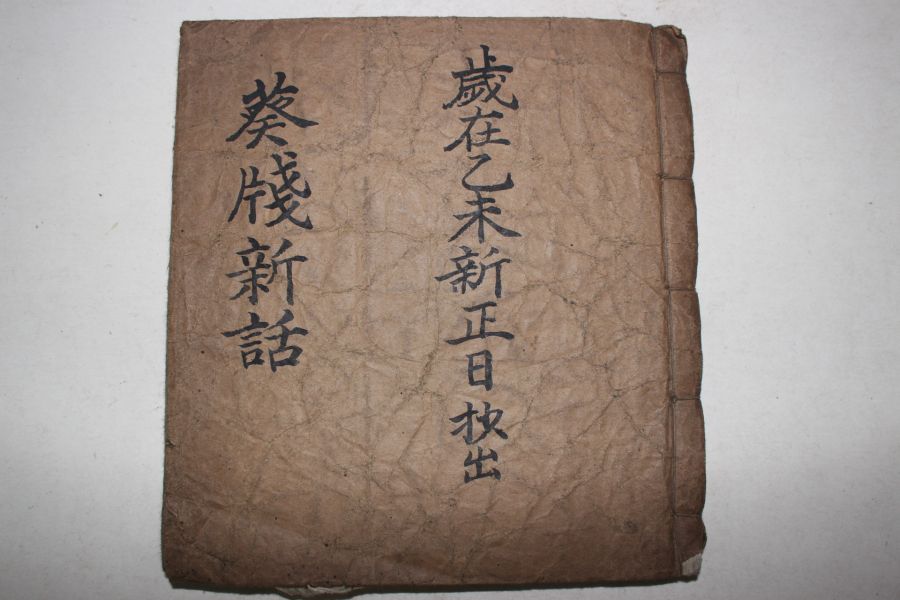 歲在乙未新正日抄出
葵牋新話